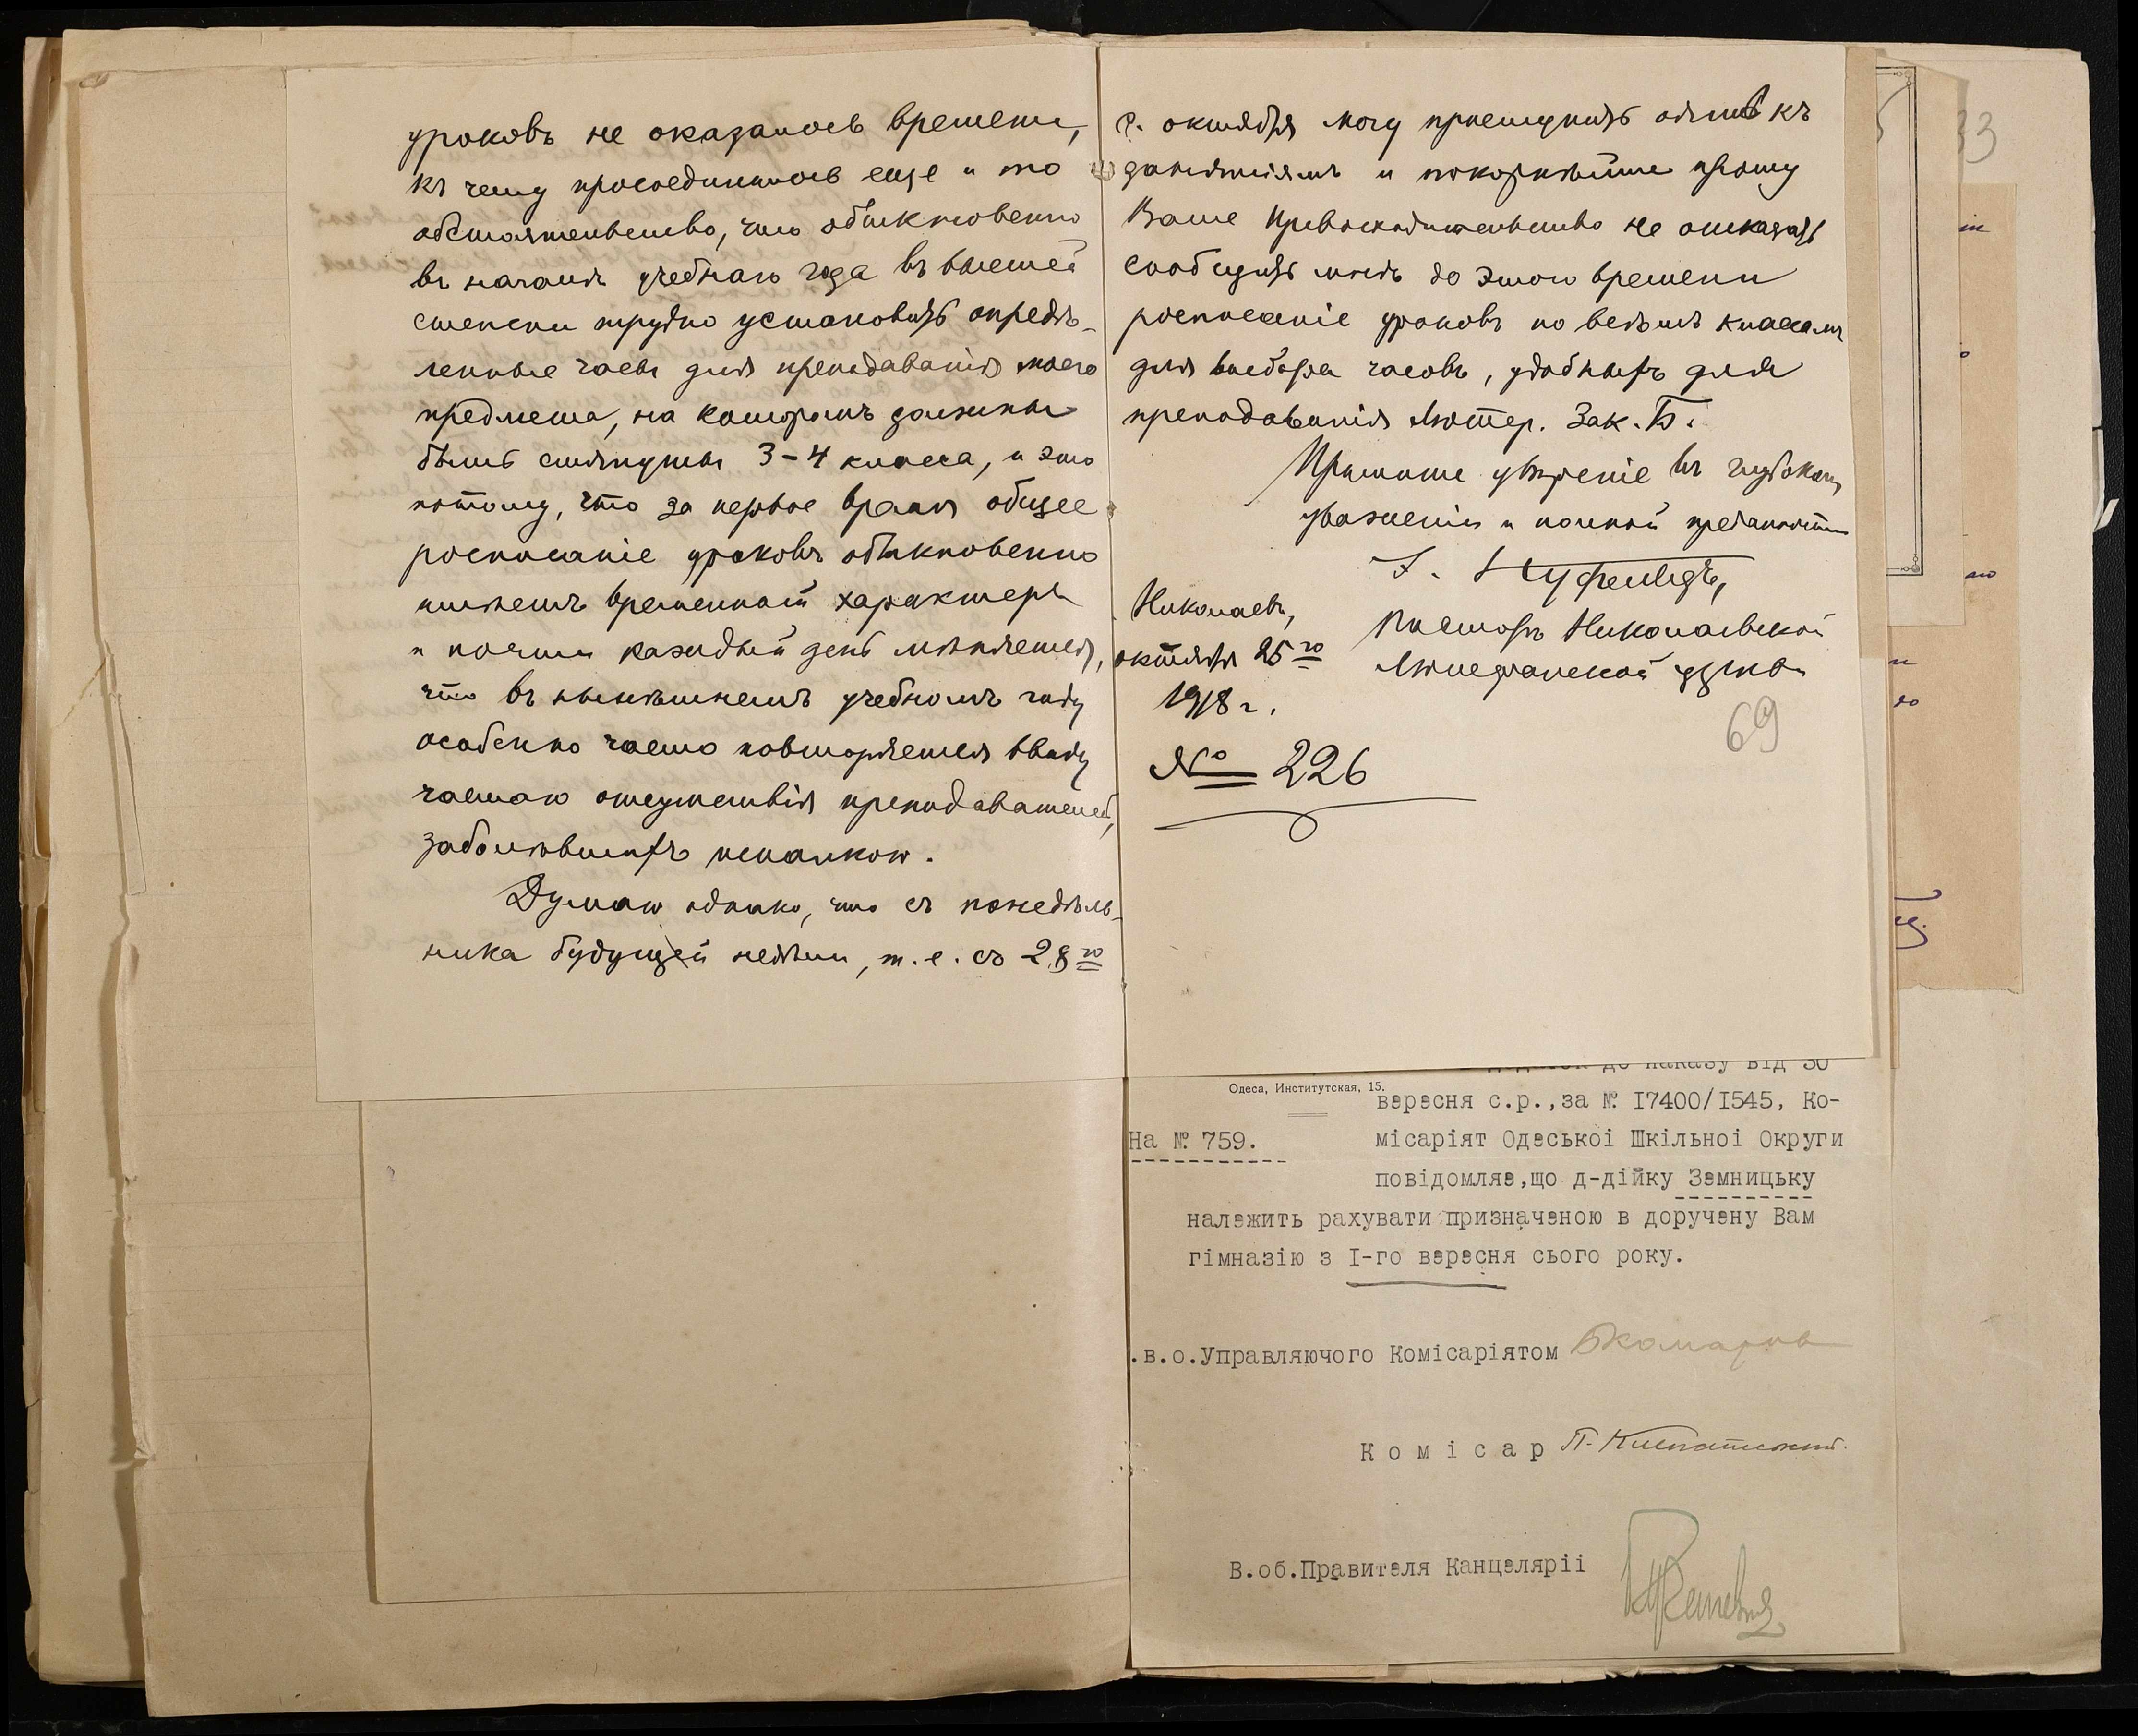 уроковъ не оказалось времени,
къ чему присоединилось еще и то
обстоятельство, что обыкновенно
въ началѣ учебнаго года въ высшей
степени трудно установить опредѣ-
ленные часы для преподаванія моего
предмета, на которомъ должны
быть стянуты 3-4 класса, и это
потому, что за первое время общее
росписаніе уроковъ обыкновенно
имѣетъ временный характеръ
и почти каждый день мѣняется,
что въ нынѣшнемъ учебномъ году
особенно часто повторяется ввиду
частаго отсутствія преподавателей,
заболѣвшихъ испанкою.
Думаю однако, что съ понедѣль-
ника будущей недѣли, т.е. съ 28го
октября могу приступить опять къ
занятіямъ и покорнѣйше прошу
Ваше Превосходительство не отказать
сообщить мнѣ до этого времени
росписаніе уроковъ по всѣмъ классамъ
для выбора часовъ, удобныхъ для
преподаванія Лютер. Зак. Б.
Примите увѣреніе въ глубокомъ
уваженіи и полной преданности
Пасторъ Николаевской
Лютеранской церкви
Николаевъ,
октября 25го
1918 г.
№ 226
69
33
до наказу від 30
Одеса, Институтская, 15.
вересня с.р.,за № I7400/I545, Ко-
На № 759.
місаріят Одеськоі Шкільноі Округи
повідомляє,що д-дійку Земницьку
належить рахувати призначеною в доручену Вам
гімназію з I-го вересня сього року.
.в.о.Управляючого Комісаріятом
Комісар
В.об.Правителя Канцеляріі